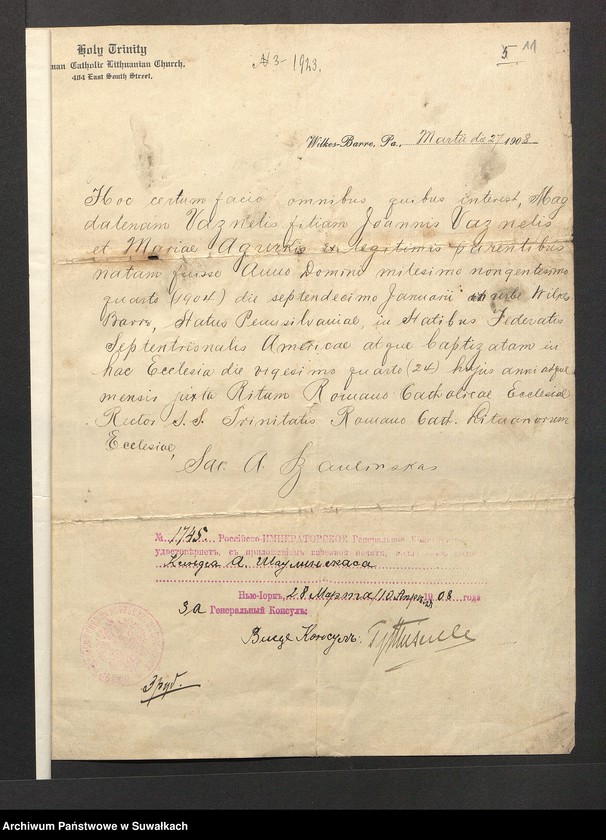 Holy Trinity
man Catholic Lithuanian Church.
484 East South Street.
№ 3- 1923.
5 11
Wilkes-Barre, Pa., Martii die 27 1908
Hoc certum facio omnibus, quibus interest, Mag
dalenam Vaznelis filiam Joannis Vaznelis
et Mariae Agurkis ex legitimis parentibus
natum fuisse Anno Domini milesimo nongentesimo
quarto (1904) die septendecimo Januarii in urbe Wilkes
Barre, Status Pensilvaniae, in Statibus Federatis
Septentrionalis Americae atque baptizatam in
hac Ecclesia die vigesimo quarto (24) hujus anni atque
mensis juxta Ritum Romano Catholicae Ecclesiae
Rector S.S. Trinitatis Romano Cath. Lituanorum
Ecclesiae,
Sac. A. Szaulinskas
№ 1745. Россійско-ИМПЕРАТОРСКОЕ Генеральное
удостовѣряетъ, съ приложеніемъ казенной печати,
Ксендза А. Шаулинскаса
Нью-Іоркъ, 28 Марта/10 Апрѣля 1908 года
За Генеральный Консулъ:
Вице Консулъ:
3 руб.
Archiwum Państwowe w Suwałkach